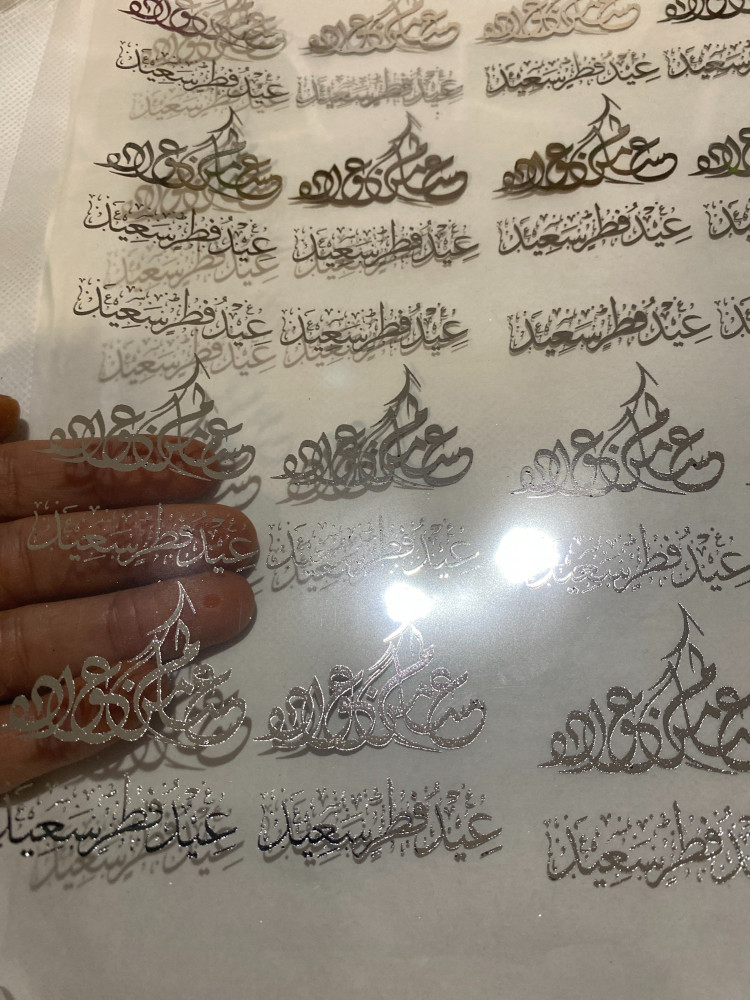 عساكم من عواده عساكم من عواده عساكم من عواده
سعيد عيد فطر سعيد عيد فطر سعيد عيد فطر سعيد
عساكم من عواده عساكم من عواده عساكم من عواده
عيد فطر سعيد عيد فطر سعيد عيد فطر سعيد
عيد فطر سعيد عيد فطر سعيد عيد فطر سعيد
عساكم من عواده عساكم من عواده عساكم من عواده
عيد فطر سعيد عيد فطر سعيد عيد فطر سعيد
عساكم من عواده عساكم من عواده عساكم من عواده
فطر سعيد عيد فطر سعيد عيد فطر سعيد